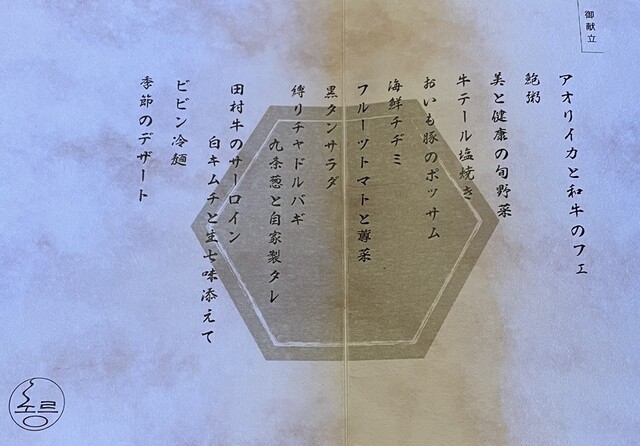 御献立
アオリイカと和牛のフェ
鮑粥
美と健康の旬野菜
牛テール塩焼き
おいも豚のポッサム
海鮮チヂミ
フルーツトマトと蓴菜
黒タンサラダ
縛りチャドルバギ
九条葱と自家製タレ
田村牛のサーロイン
白キムチと生七味添えて
ビビン冷麺
季節のデザート